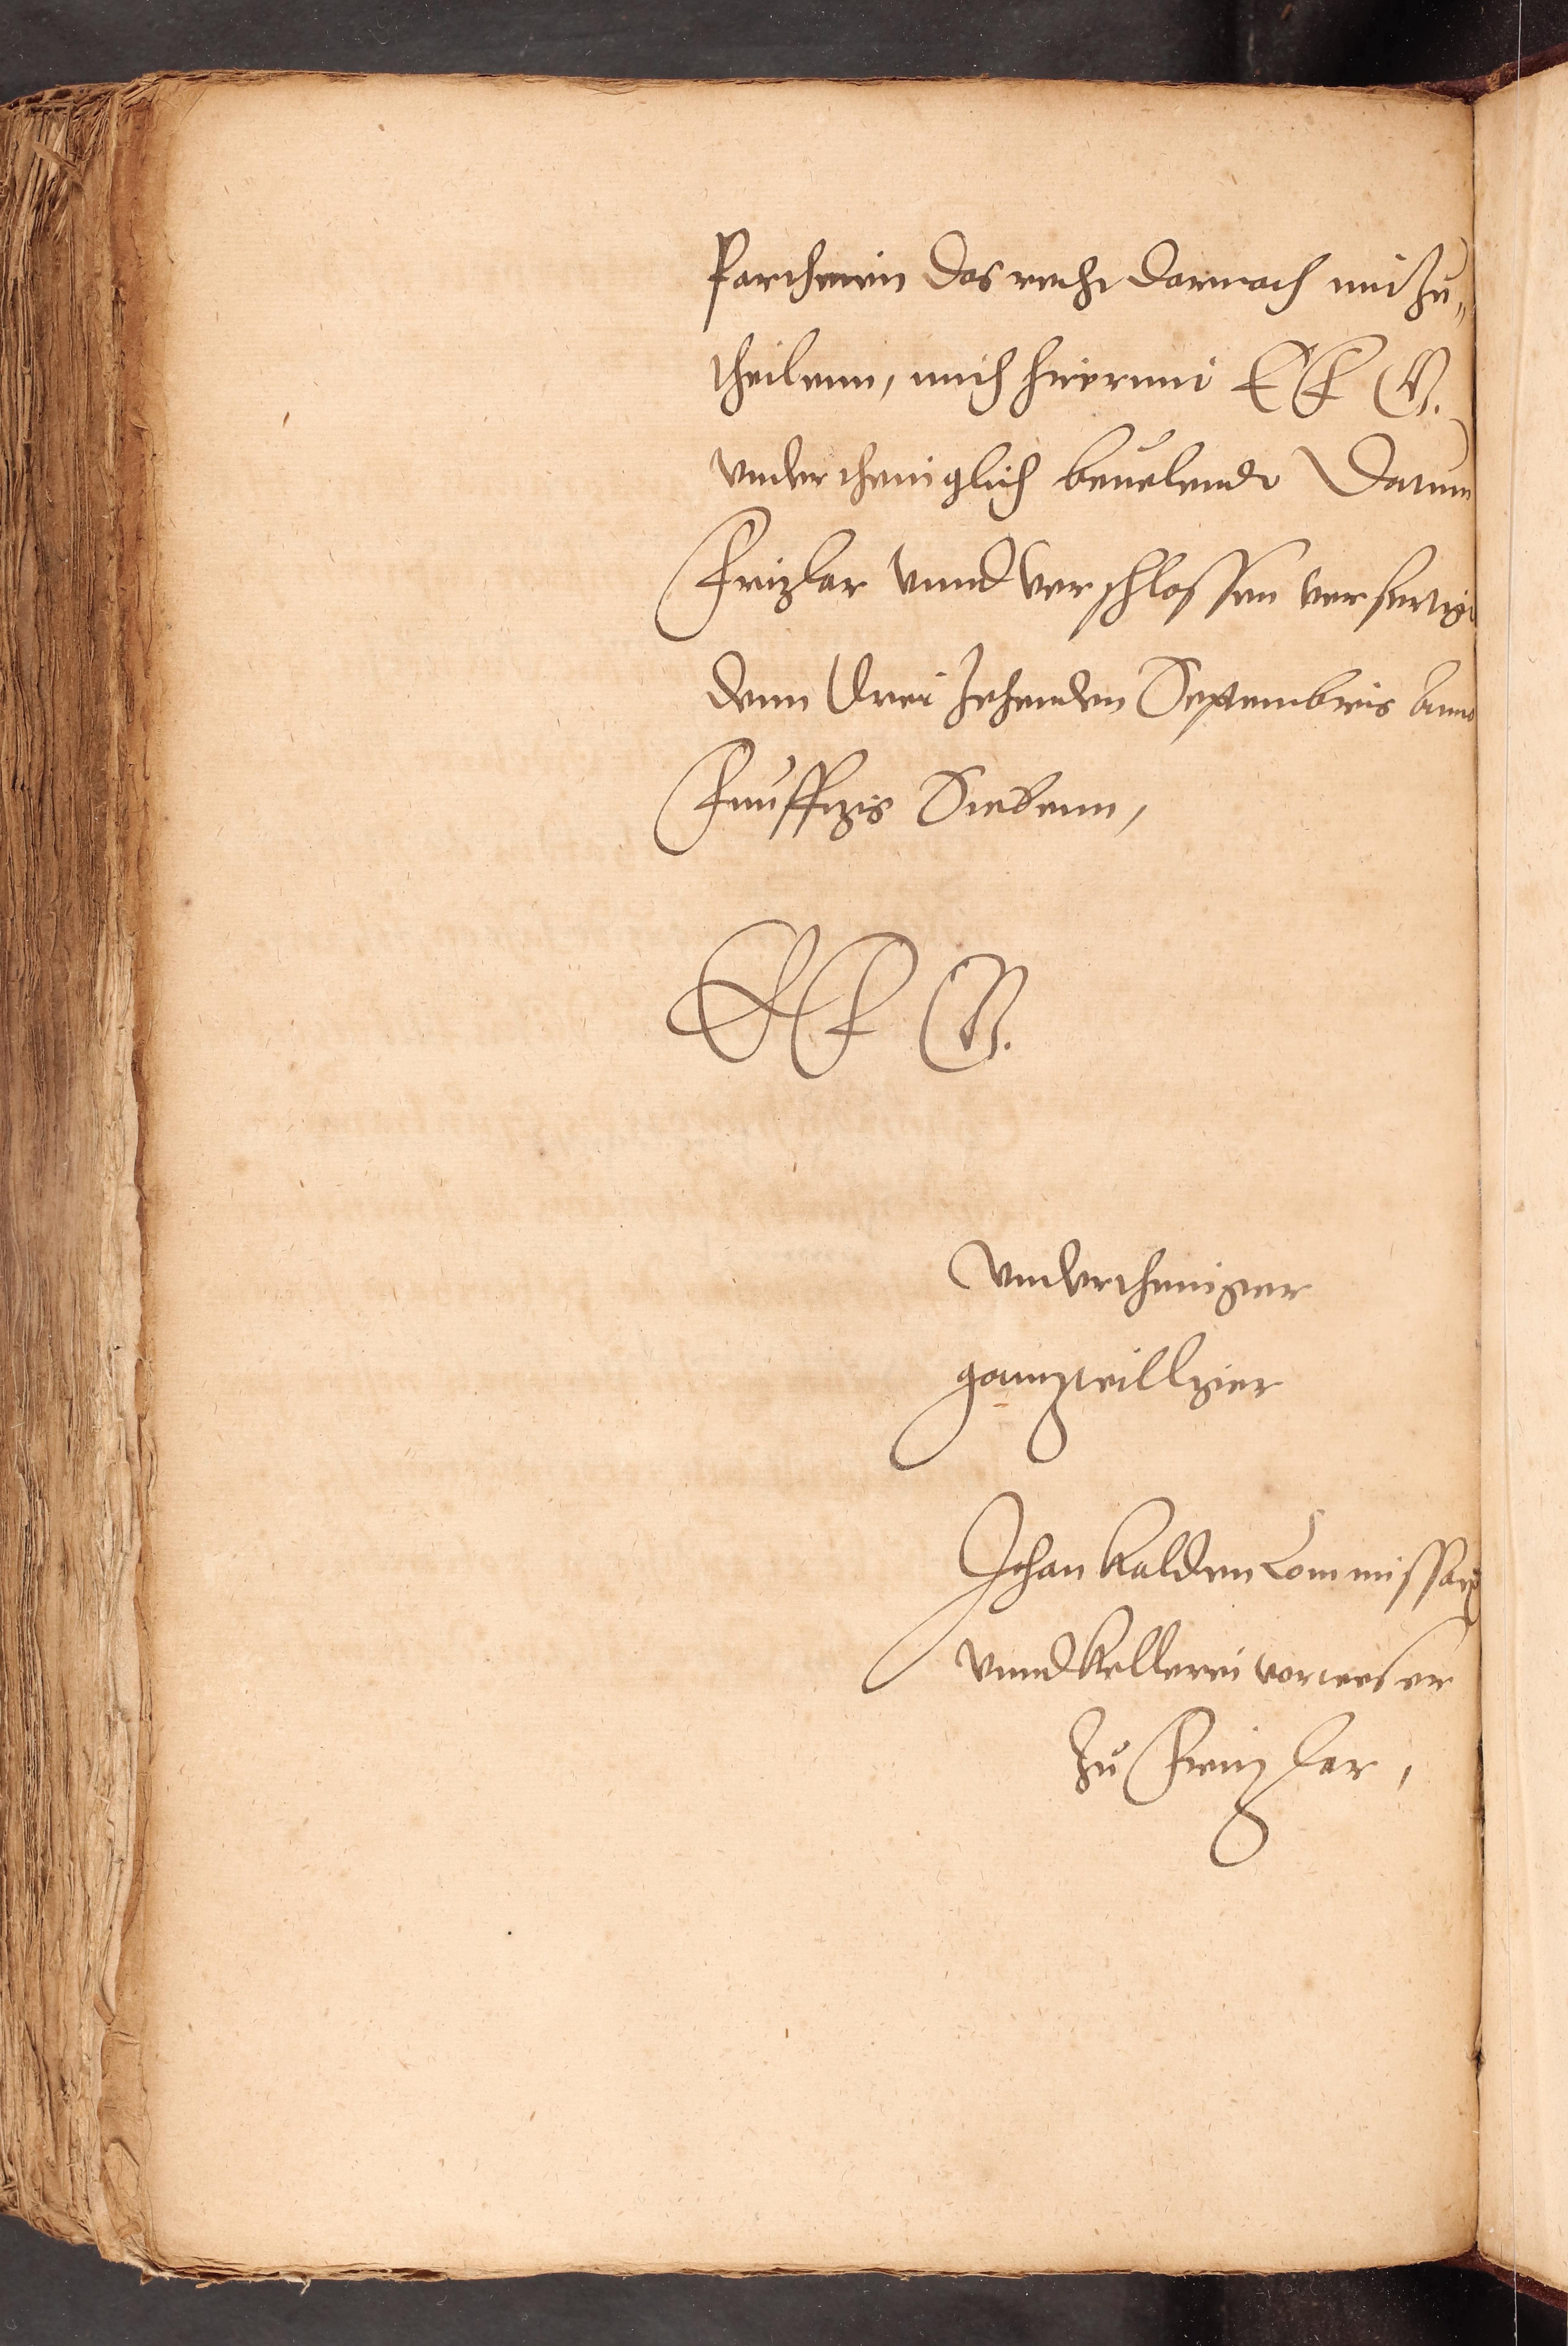 Partheien das recht darnach mit zu„
theilenn, mich hiermit E F G.
underthenigklich beuelende Datum
Fritzlar vnnd verschlossen verfertigt
denn Dreizehenden Septembris Anno
Funfftzig Siebenn,
E F G.
Vnderthenigster
gantzwilliger
Johan Kalden Commissari
vnnd Kellerei verweser
zu Fritzlar,